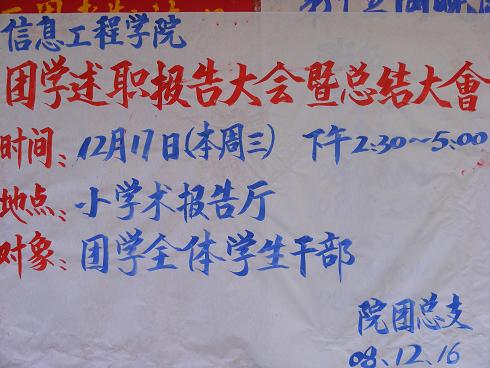 信息工程学院
团学述职报告大会暨总结大會
时间：12月17日(本周三) 下午2:30~5:00
地点：小学术报告厅
对象：团学全体学生干部
院团总支
08.12.16